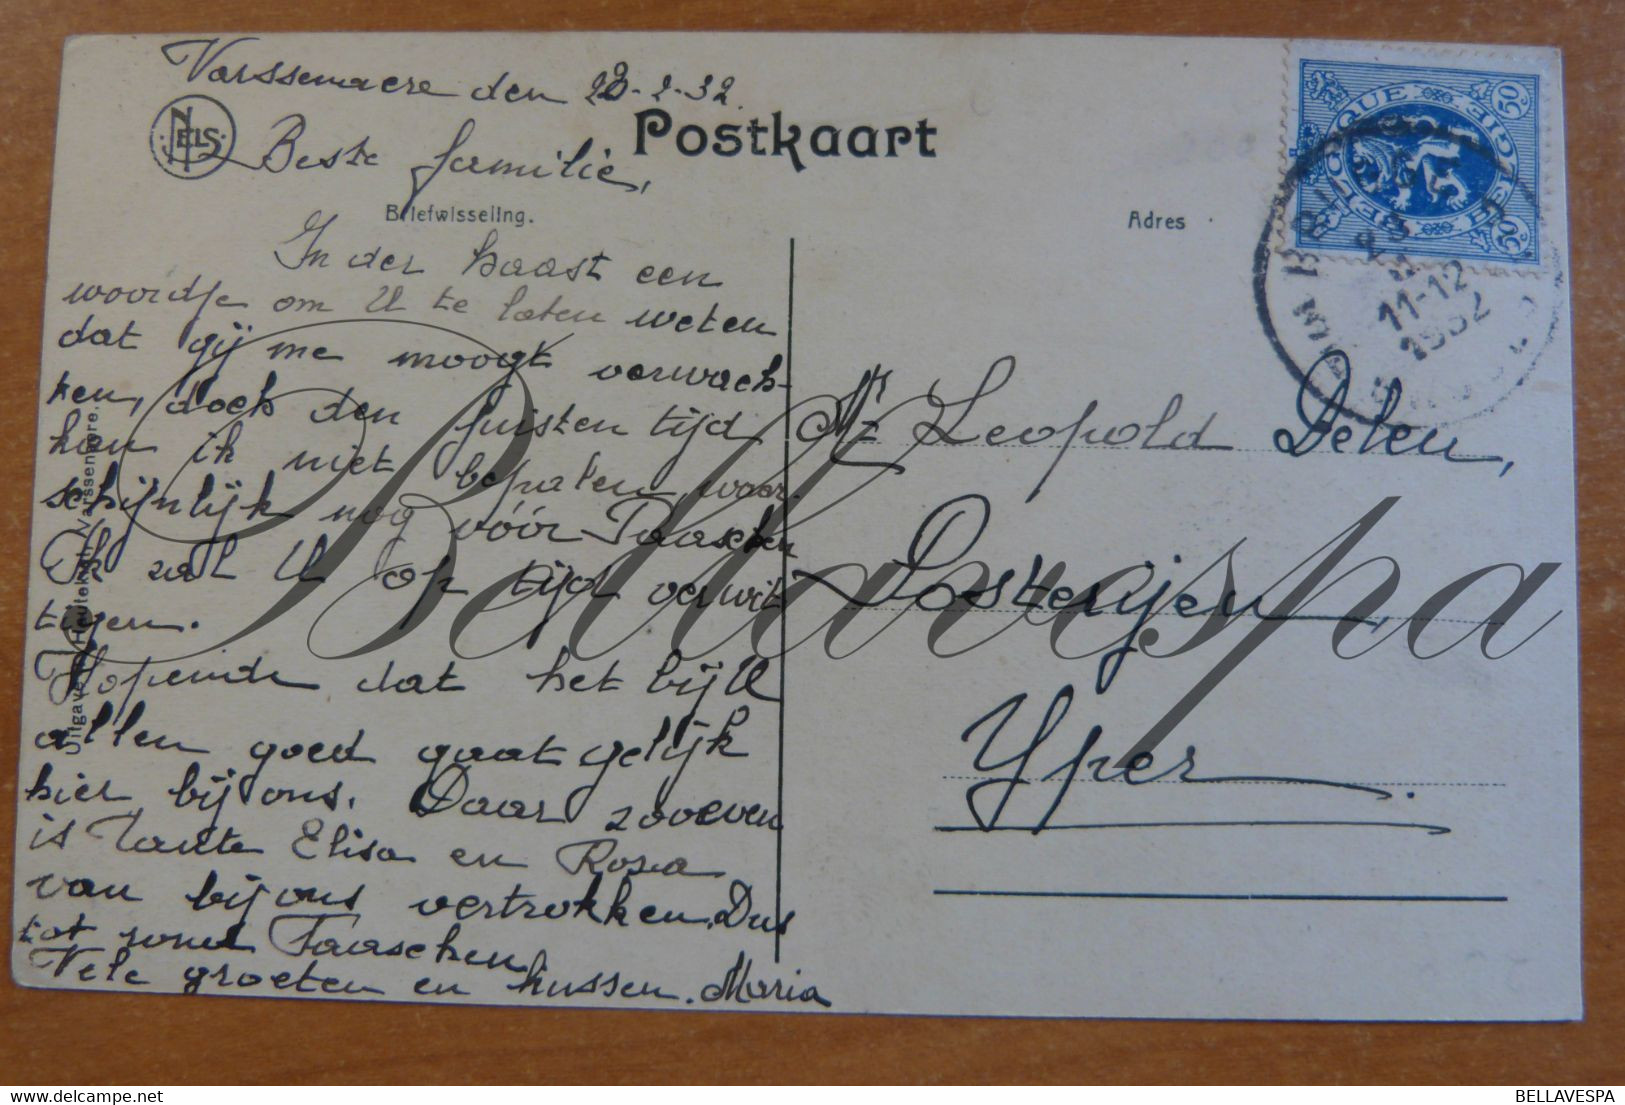 Varssenaere den 22-2-32.
NELS
Postkaart
Beste familie,
Briefwisseling.
Adres
In der haast een
woordje om U te laten weten
dat gij me moogt verwach-
ten, doch den juisten tijd
kan ik niet bepalen, waar-
schijnlijk nog vóór Paaschen
Ik zal U op tijd verwit
tigen.
Hopende dat het bij U
allen goed gaat gelijk
hier bij ons. Daar zooeven
is Tante Elisa en Rosa
van bij ons vertrokken. Dus
tot rond Paaschen
Vele groeten en kussen. Maria
Mr Leopold Deleu,
Posterijen,
Yper.
BELGIQUE BELGIE
50c 50c
23
11-12
1932
Bellavespa
BELLAVESPA